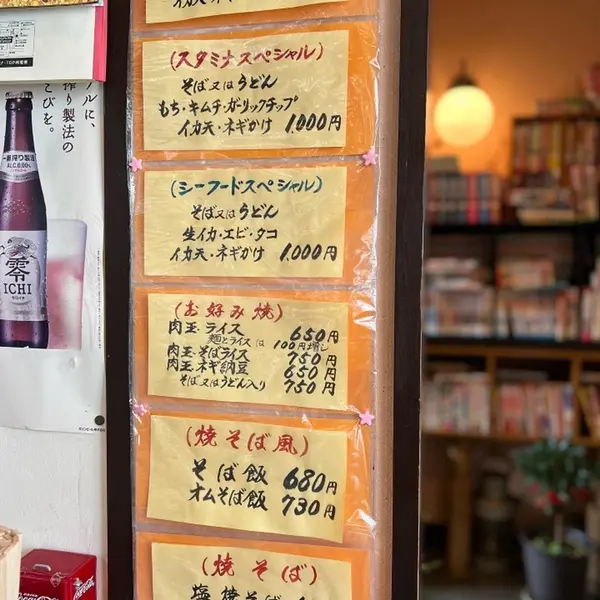 イカ天・ネギかけ
(スタミナスペシャル)
そば又はうどん
もち・キムチ・ガーリックチップ
イカ天・ネギかけ 1.000円
(シーフードスペシャル)
そば又はうどん
生イカ・エビ・タコ
イカ天・ネギかけ 1.000円
(お好み焼)
肉玉・ライス 650円
麺とライスは100円増し
肉玉・そばライス 750円
肉玉・ネギ納豆 650円
そば又はうどん入り 750円
(焼そば風)
そば飯 680円
オムそば飯 730円
(焼そば)
塩焼そば
ルに、
作り製法の
こびを。
一番搾り製法
ALC.0.00%
零
ICHI
Coca-Cola